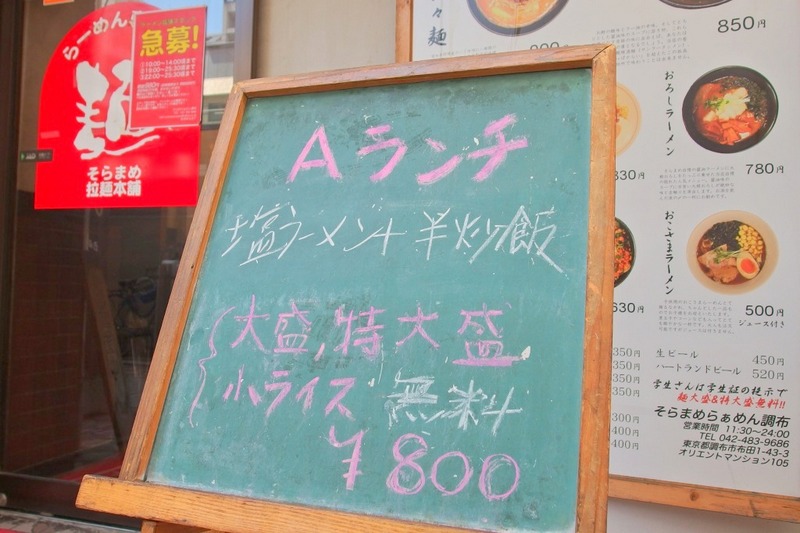 らーめん
麺
そらまめ
拉麺本舗
急募!
Aランチ
塩ラーメン+半炒飯
大盛,特大盛
小ライス 無料
¥800
麺
850円
おろしラーメン
780円
おこさまラーメン
500円
ジュース付き
830円
630円
350円
350円
350円
350円
300円
400円
400円
生ビール 450円
ハートランドビール 520円
学生さんは学生証の提示で
麺大盛&特大盛無料!!
そらまめらぁめん調布
営業時間 11:30~24:00
TEL 042-483-9686
東京都調布市布田1-43-3
オリエントマンション105